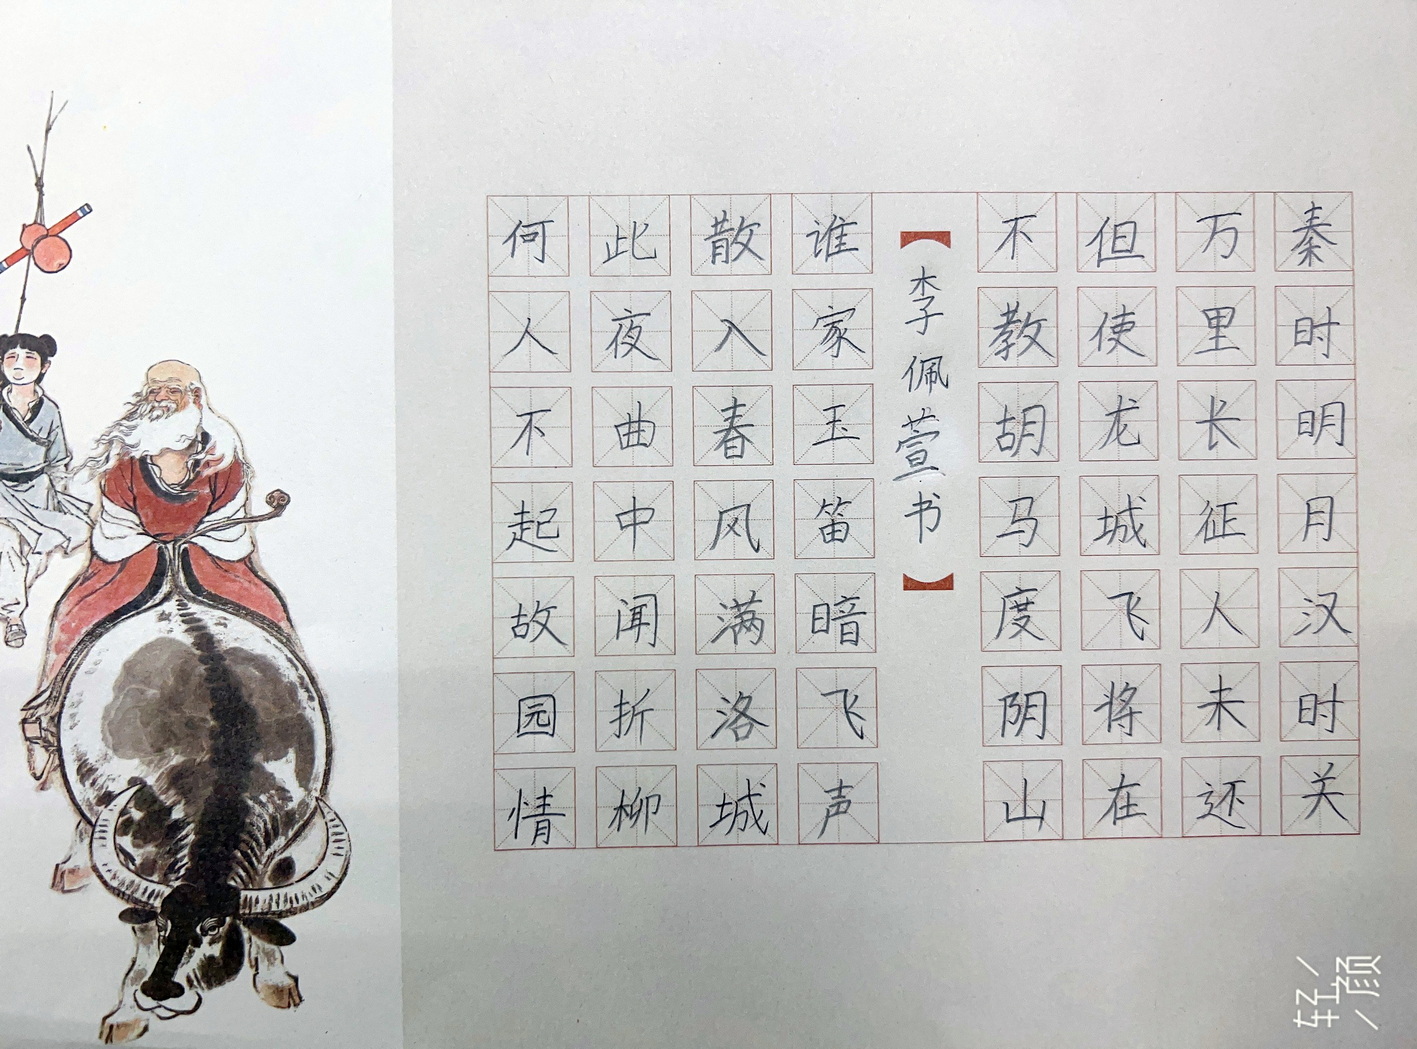 秦时明月汉时关
万里长征人未还
但使龙城飞将在
不教胡马度阴山
【李佩萱书】
谁家玉笛暗飞声
散入春风满洛城
此夜曲中闻折柳
何人不起故园情
轻颜